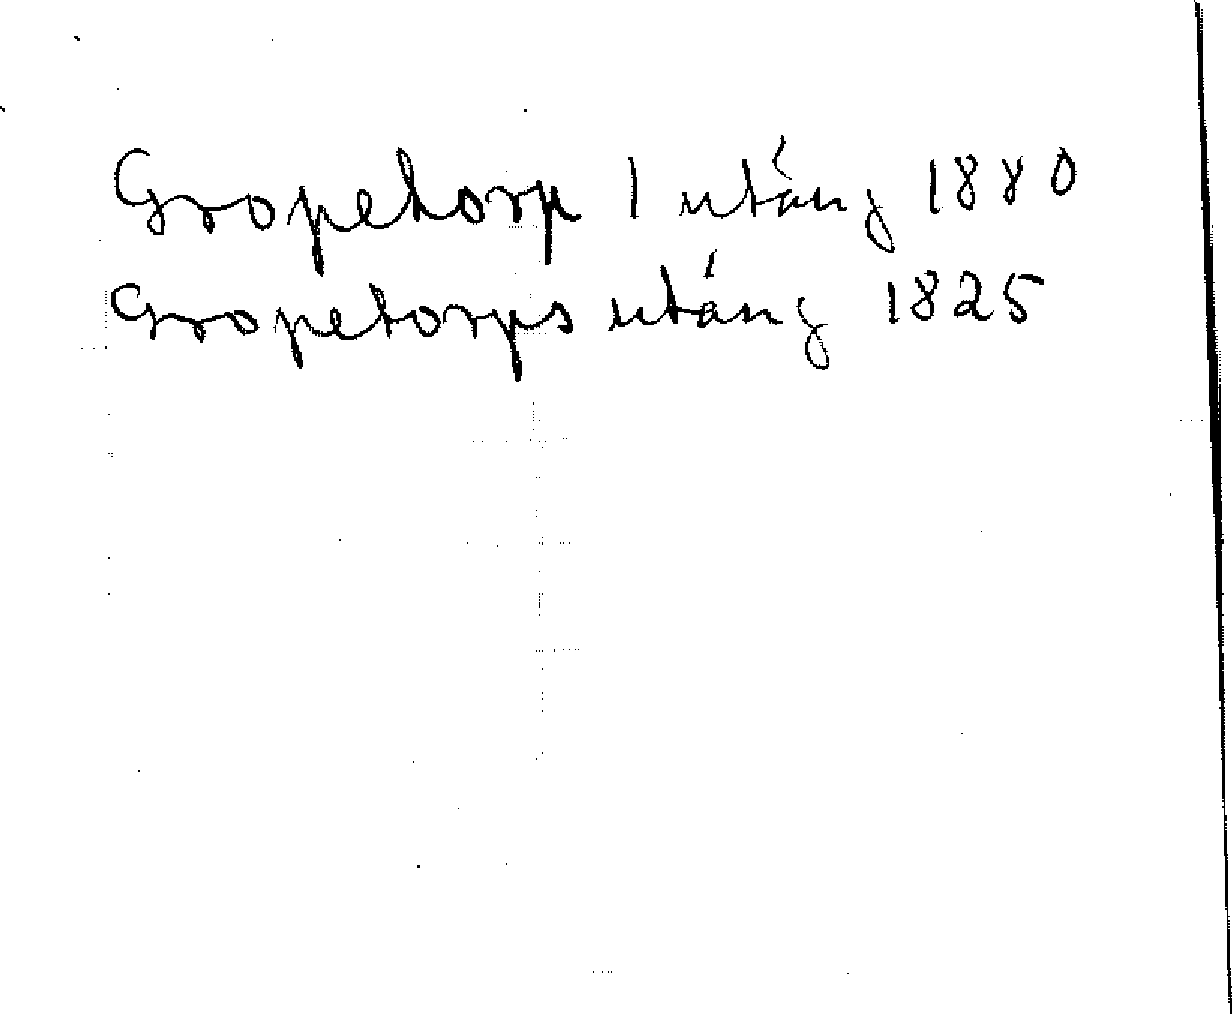 Gropetorp 1 utäng 1880
Gropetorps utäng 1825